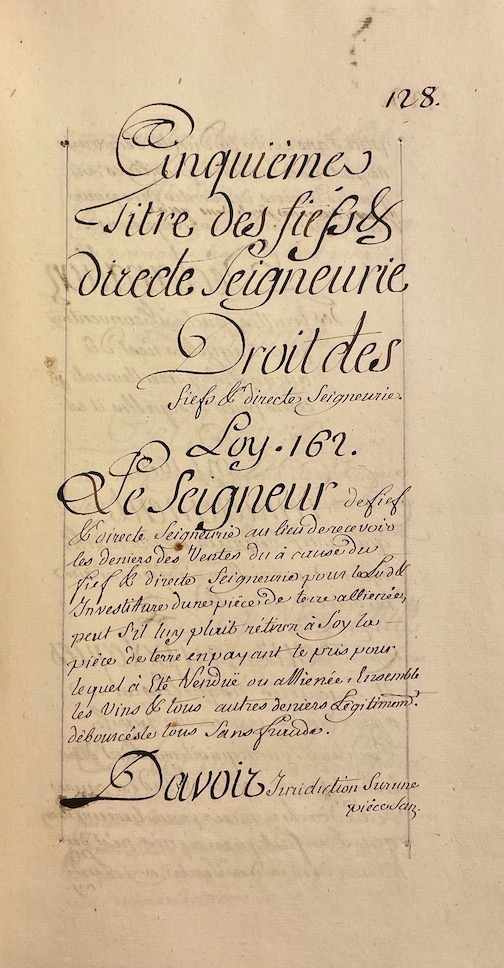 128.
Cinquiéme
Titre des fiefs &
directe Seigneurie
Droit des
fiefs & directe Seigneurie.
Loy. 162.
Le Seigneur de fief
& directe Seigneurie au lieu de recevoir
les deniers des Ventes du à cause du
fief & directe Seigneurie pour le Lod &
Investiture dune piéce de terre allienée,
peut s'il luy plait rétirer à Soy la
piéce de terre en payant le pris pour
lequel à Eté Venduë ou allienée, Ensemble
les Vins & tous autres deniers Légitimemt.
déboursés le tous Sans fraude.
Davoir Juridiction Sur une
piéce San